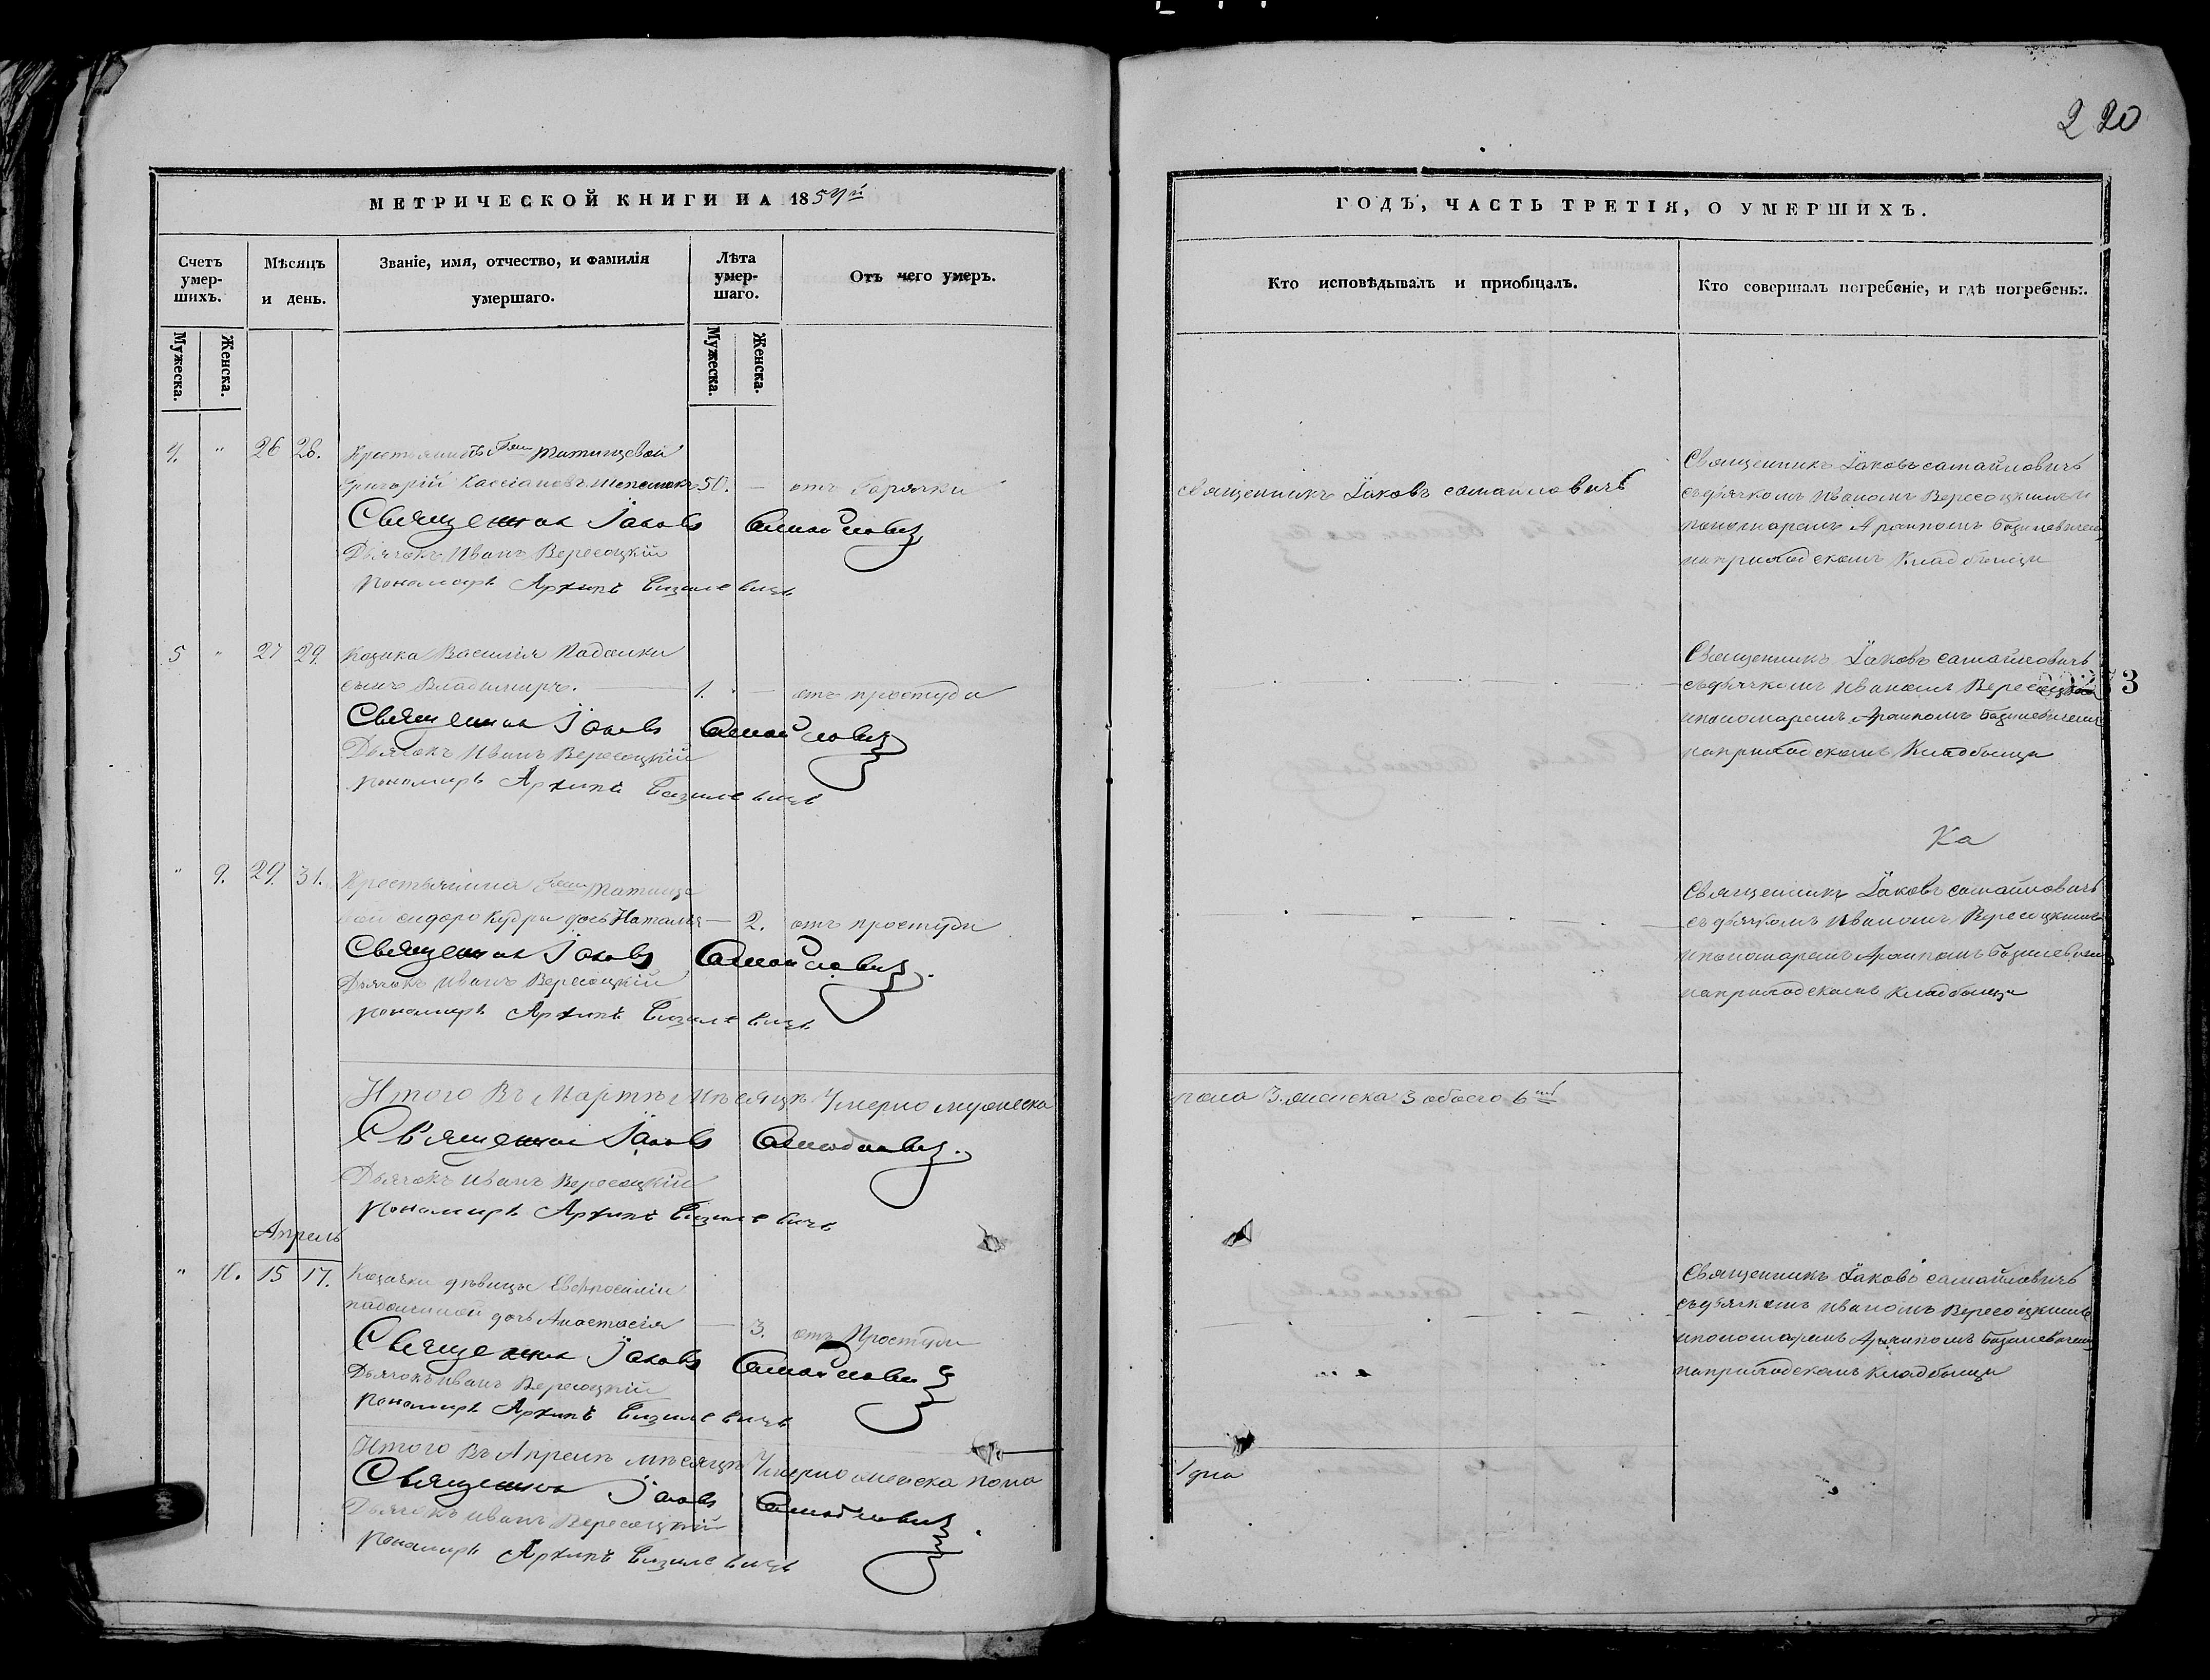 220
МЕТРИЧЕСКОЙ КНИГИ НА 18
ГОДЪ, ЧАСТЬ ТРЕТІЯ, О УМЕРШИХЪ.
Счетъ умер-шихъ.
Мѣсяцъ и день.
Званіе, имя, отчество, и фамилія умершаго.
Лѣта умер-шаго.
Отъ чего умеръ.
Кто исповѣдывалъ и пріобщалъ.
Кто совершалъ погребеніе, и гдѣ погребены.
Мужеска.
Женска.
Мужеска.
Женска.
4. " 26 28. Григорій Кассіановъ 50. — отъ горячки
Священник Іаковъ Самойлович
Дьячокъ Иванъ Вересоцкій
пономарь Архипъ Базилевичъ
священникъ Іаковъ самайловичъ
Священникъ Іаковъ самайловичъ
съ дьячкомъ Иваномъ Вересоцкимъ и
пономаремъ Базилевичемъ
на приходскомъ Кладбыщи
5 " 27 29. Козака Василія
сынъ Владимиръ. — 1. — отъ простуди
Священник Іаковъ Самойлович
Дьячокъ Иванъ Вересоцкій
пономарь Архипъ Базилевичъ
Священникъ Іаковъ самайловичъ
съ дьячкомъ Иваномъ
и пономаремъ Базилевичемъ
на приходскомъ Кладбыщи
3
Ка
" 9. 29. 31. Крестьянина
сидора Кудри дочь Наталья — 2. отъ простуди
Священник Іаковъ Самойлович.
Дьячокъ Иванъ Вересоцкій
пономарь Архипъ Базилевичъ
Священникъ Іаковъ самайловичъ
съ дьячкомъ Иваномъ Вересоцкимъ
и пономаремъ Базилевичемъ
на приходскомъ кладбыщи
Итого Въ Мартѣ Мѣсяцѣ Умерло мужеска
пола 3. женска 3 обоего 6
Священник Іаковъ Самойлович.
Дьячокъ Иванъ Вересоцкій
пономарь Архипъ Базилевичъ
Апрель
" 10. 15 17. Козачки дѣвицы Евфросиніи
дочь Анастасія — 3. отъ Простуди
Священник Іаковъ Самойлович
Дьячокъ Иванъ Вересоцкій
пономарь Архипъ Базилевичъ
Священникъ Іаковъ самайловичъ
съ дьячкомъ Иваномъ Вересоцкимъ
и пономаремъ Базилевичемъ
на приходскомъ кладбыщи
Итого Въ Апрелѣ мѣсяцѣ Умерло женска пола
1 дна
Священник Іаковъ Самойлович
Дьячокъ Иванъ Вересоцкій
пономарь Архипъ Базилевичъ